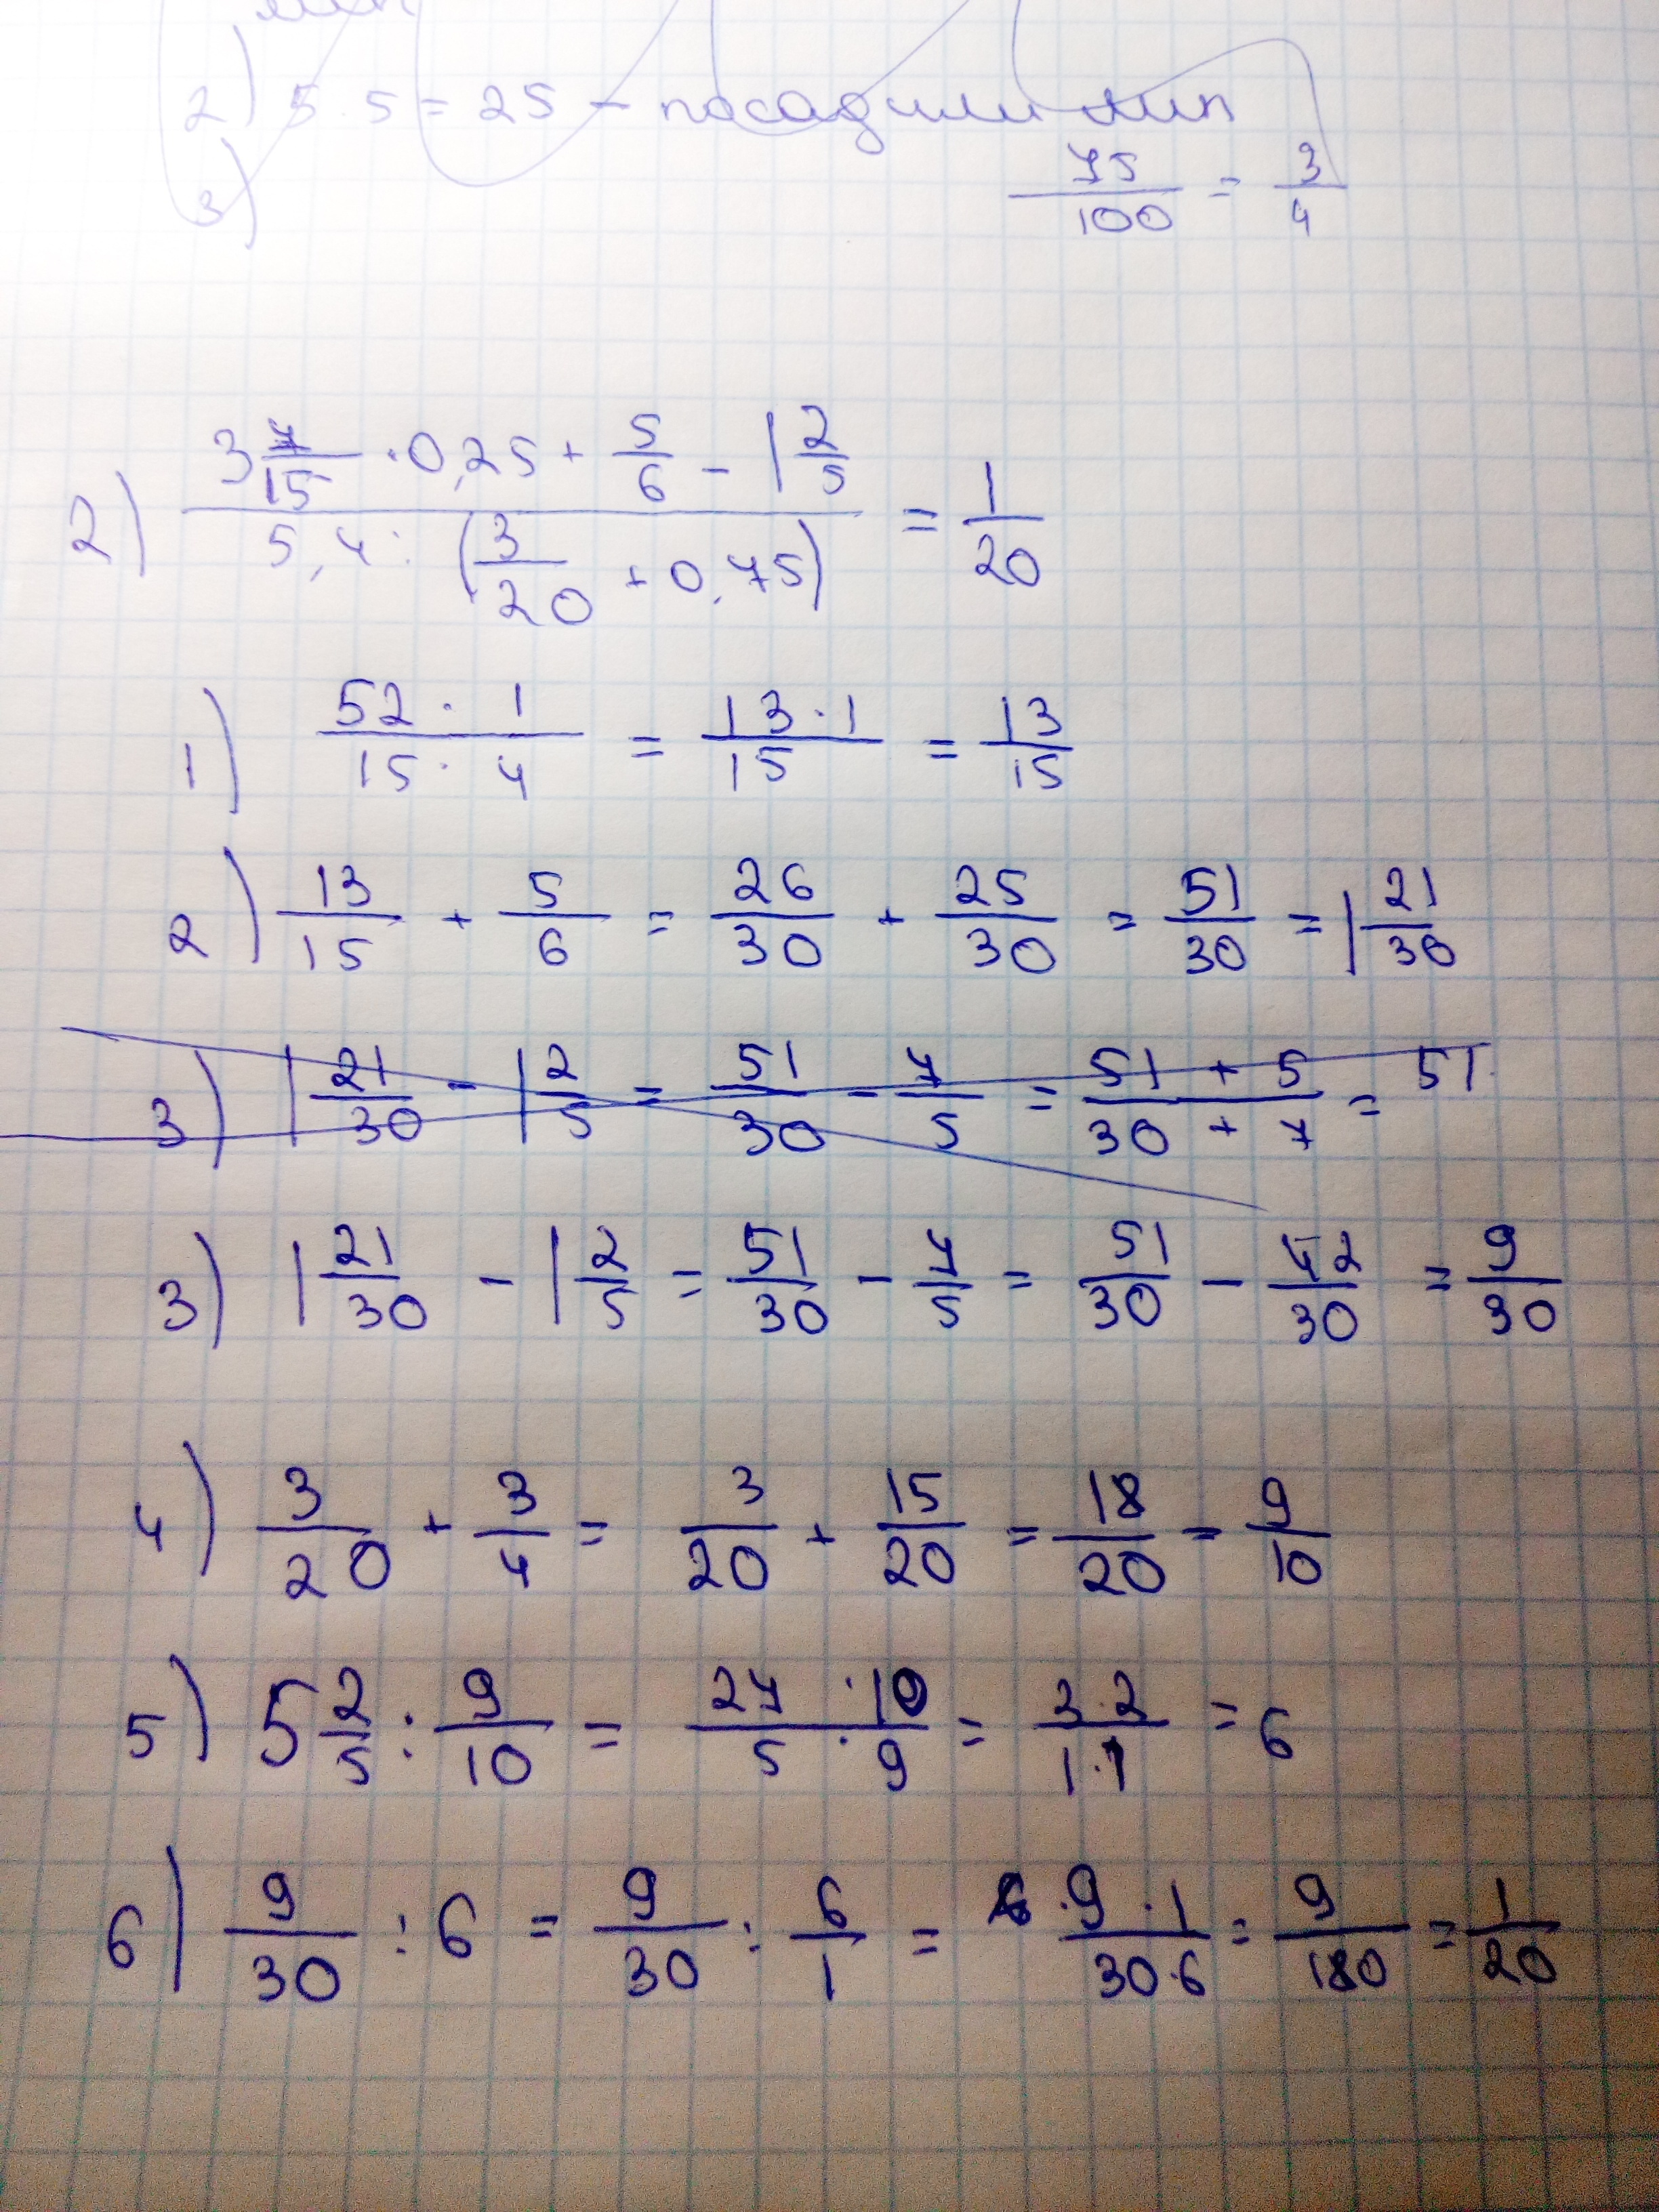 2) 5 · 5 = 25 – посадили лип
3)
75/100 = 3/4
2) (3 7/15 · 0,25 + 5/6 - 1 2/5) / (5,4 : (3/20 + 0,75)) = 1/20
1) (52 · 1)/(15 · 4) = (13 · 1)/15 = 13/15
2) 13/15 + 5/6 = 26/30 + 25/30 = 51/30 = 1 21/30
3) 1 21/30 - 1 2/5 = 51/30 - 7/5 = (51 + 5)/(30 + 7) = 51
3) 1 21/30 - 1 2/5 = 51/30 - 7/5 = 51/30 - 42/30 = 9/30
4) 3/20 + 3/4 = 3/20 + 15/20 = 18/20 = 9/10
5) 5 2/5 : 9/10 = (27 · 10)/(5 · 9) = (3 · 2)/(1 · 1) = 6
6) 9/30 : 6 = 9/30 : 6/1 = (9 · 1)/(30 · 6) = 9/180 = 1/20